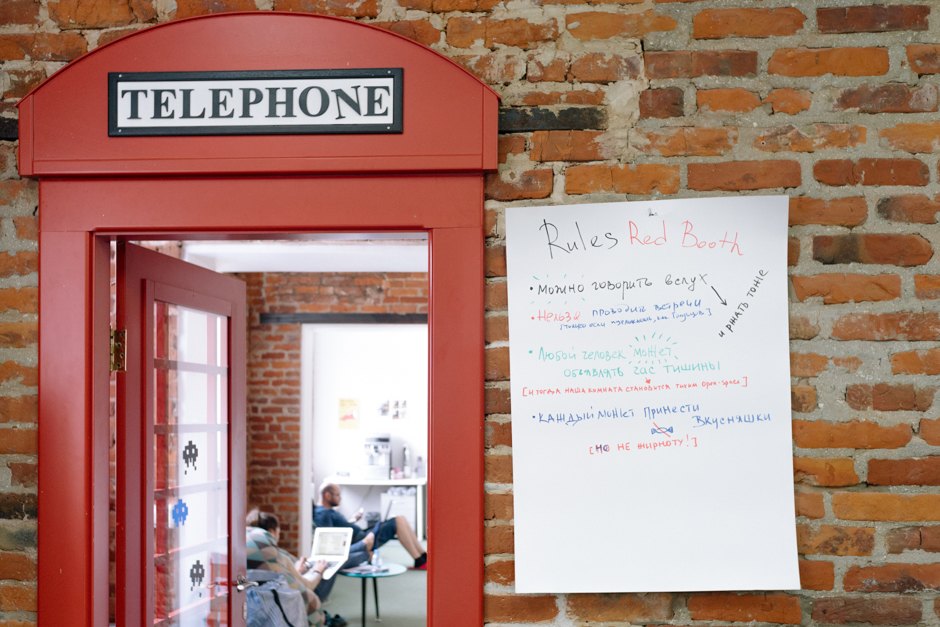 TELEPHONE
Rules Red Booth
• можно говорить вслух
и ржать тоже
• Нельзя проводить встречи
[только если
• Любой человек может
объявлять час тишины
[и тогда наша комната становится тихим Open-Space]
• каждый может принести
вкусняшки
[но не жирноту!]